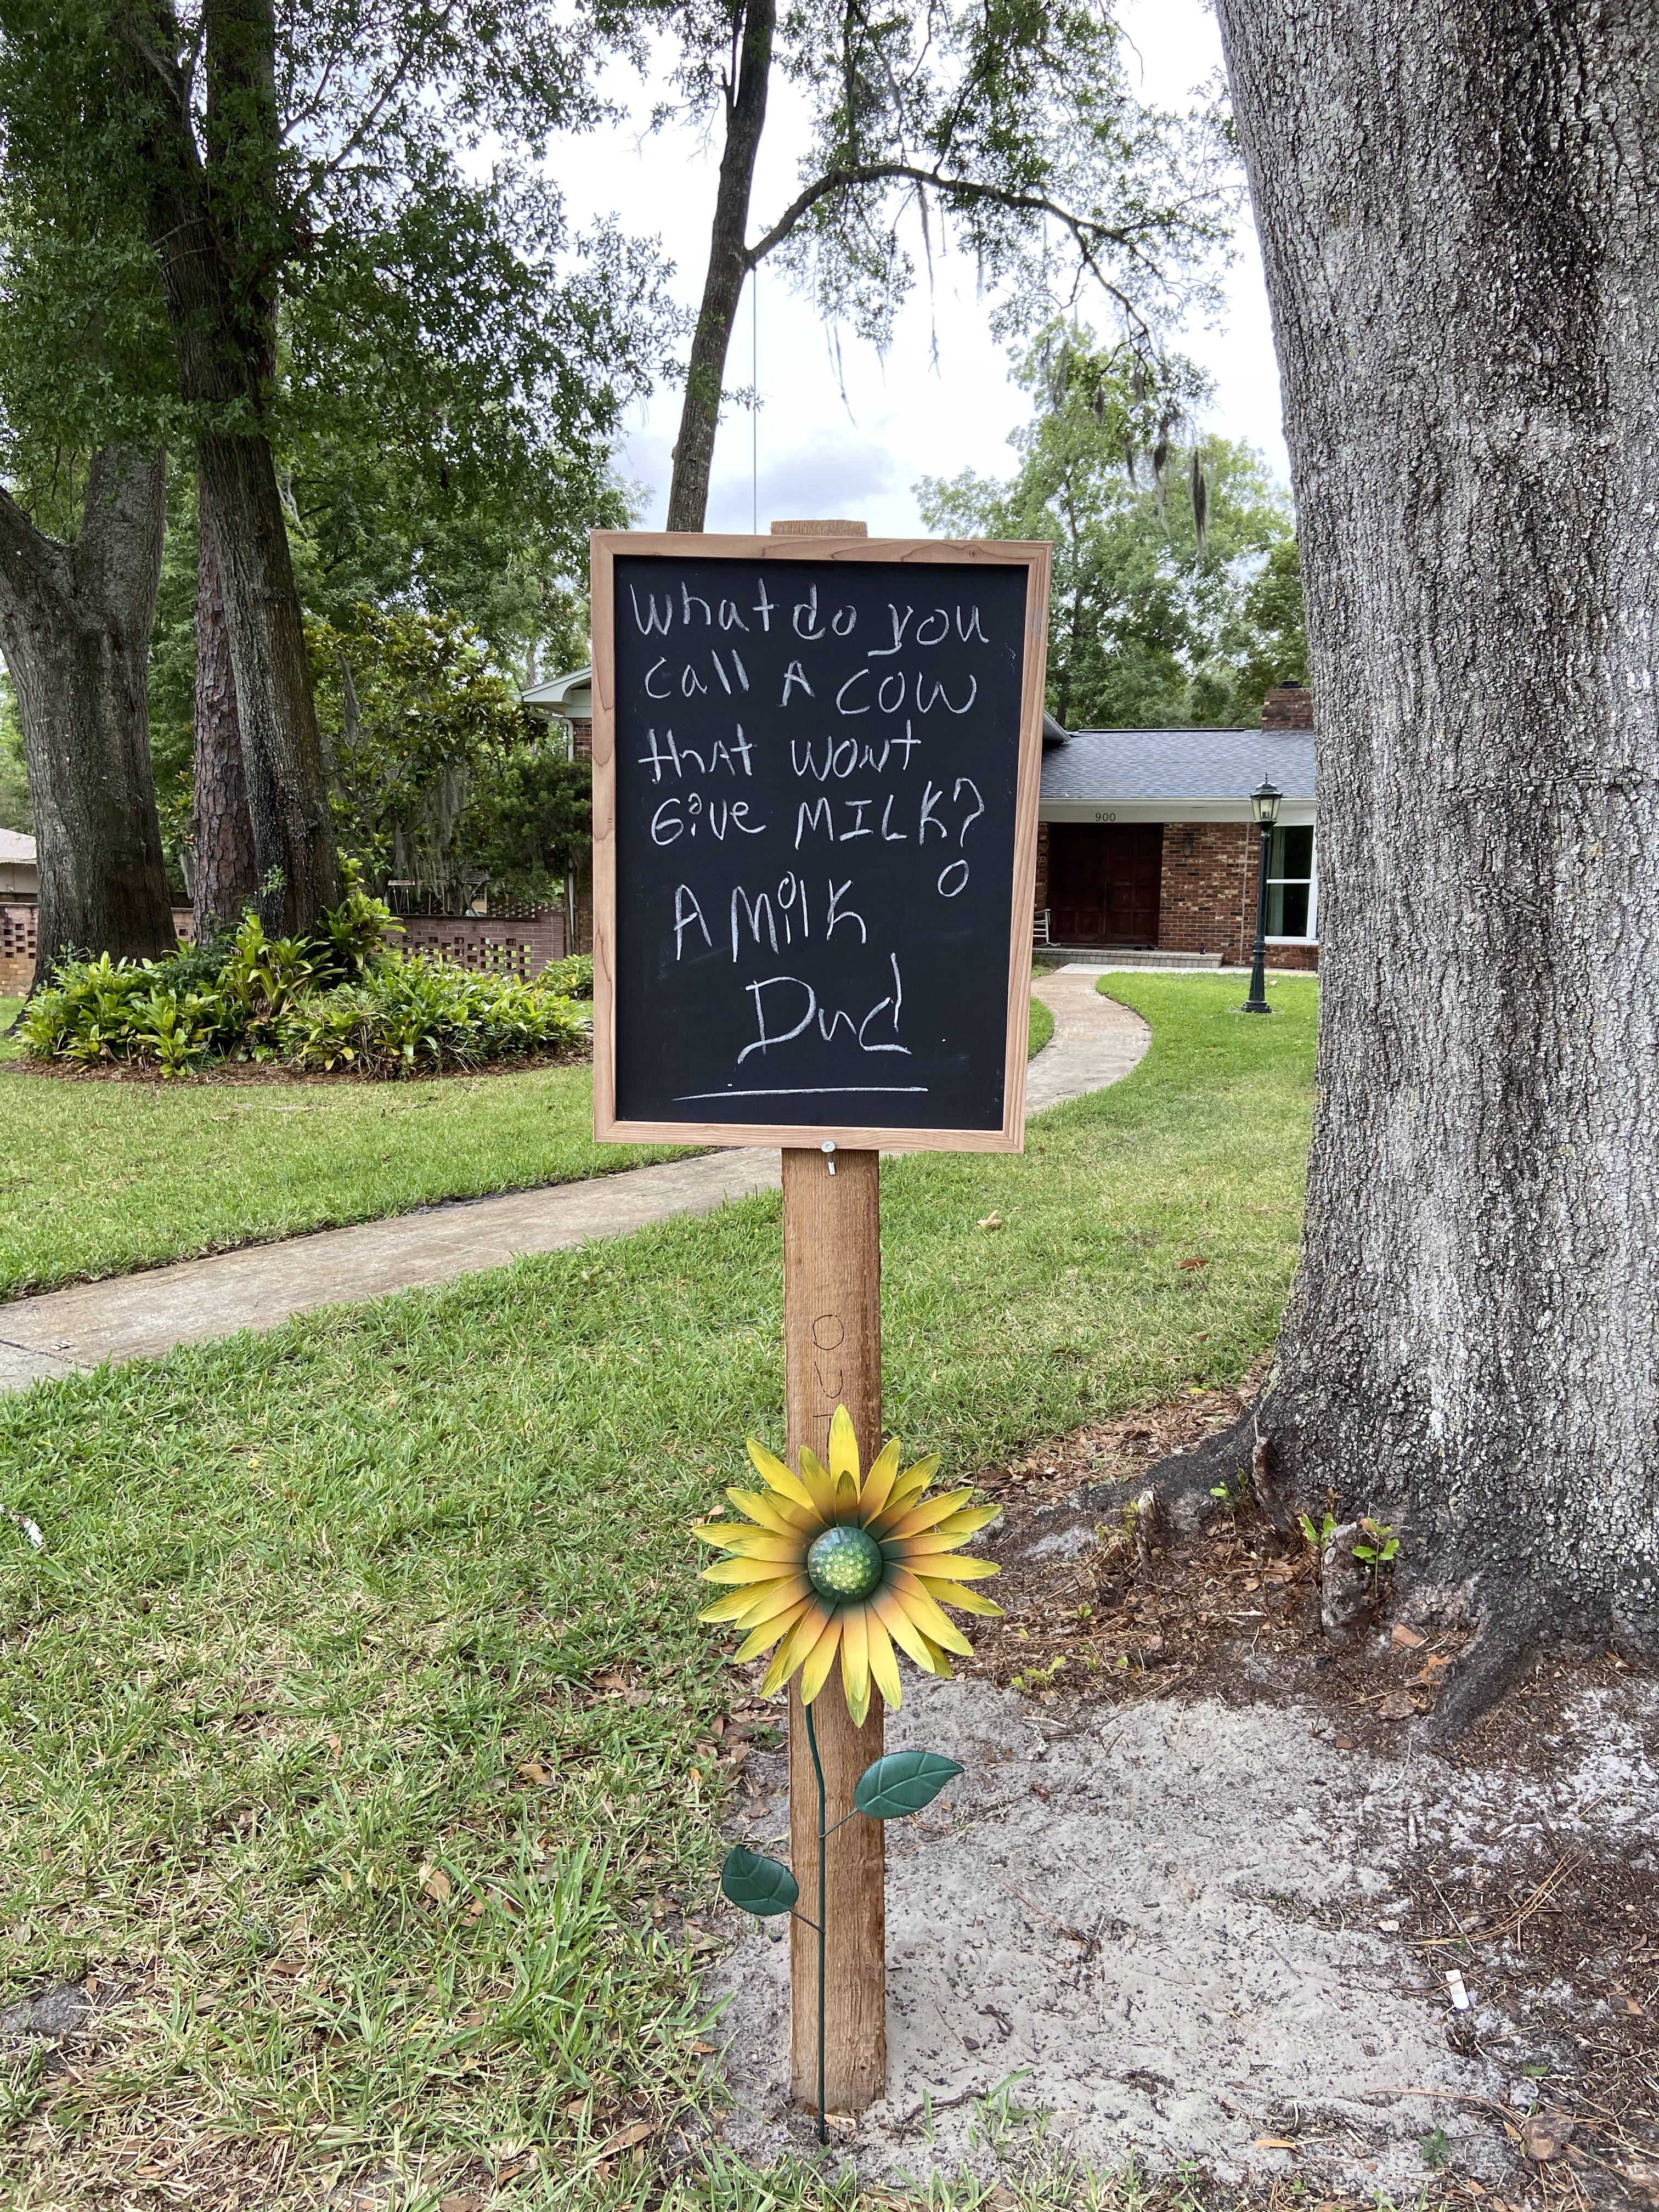 What do you
call A COW
that wont
Give MILK?
A Milk
Dud
900
OUT